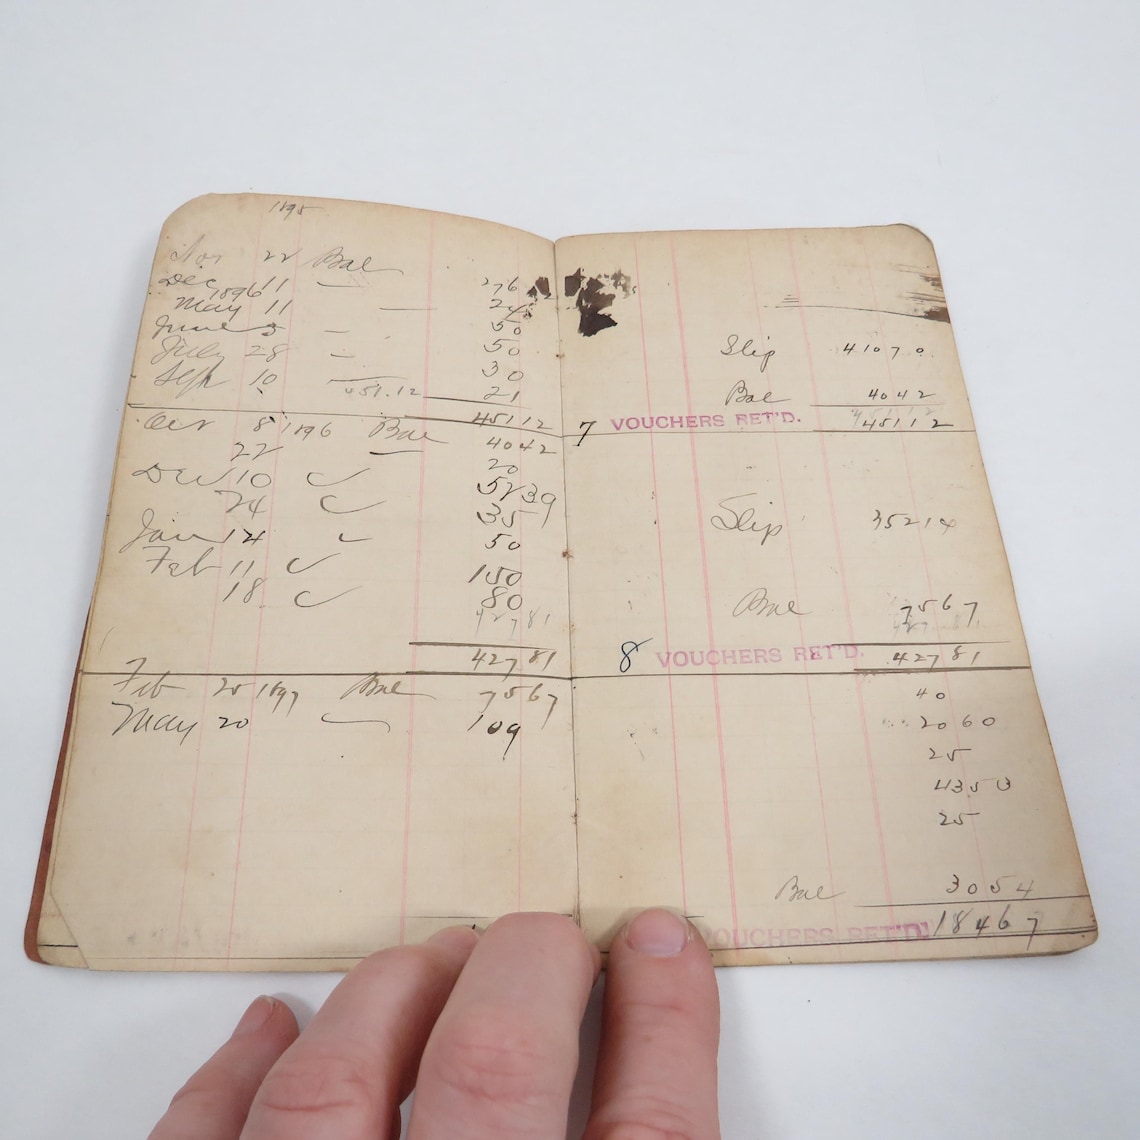 1895
Nov 22 Bal
Dec 11 — 276
1896
May 11 —
June 3 — 50
July 28 — 50
30
Sept 10 — 451.12 21
45112
Oct 8 1896 Bal 4042
22 — 20
Dec 10 ✓ 5239
24 ✓ 35
Jan 14 ✓ 50
Feb 11 ✓ 150
18 ✓ 80
427 81
427 81
Feb 25 1897 Bal 7567
May 20 — 109
Slip 41070
Bal 4042
45112
7 VOUCHERS RET'D. 45112
Slip 35214
Bal 7567
427 81
8 VOUCHERS RET'D. 42781
40
2060
25
4353
25
Bal 3054
VOUCHERS RET'D. 18467